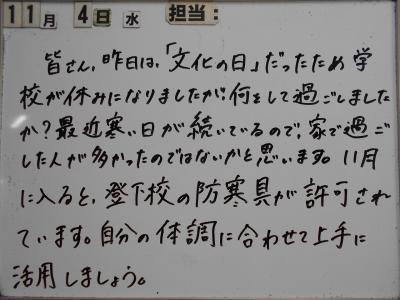 11月 4日 水 担当:
皆さん、昨日は、「文化の日」だったため学
校が休みになりましたが、何をして過ごしました
か?最近寒い日が続いているので、家で過ご
した人が多かったのではないかと思います。11月
に入ると、登下校の防寒具が許可され
ています。自分の体調に合わせて上手に
活用しましょう。